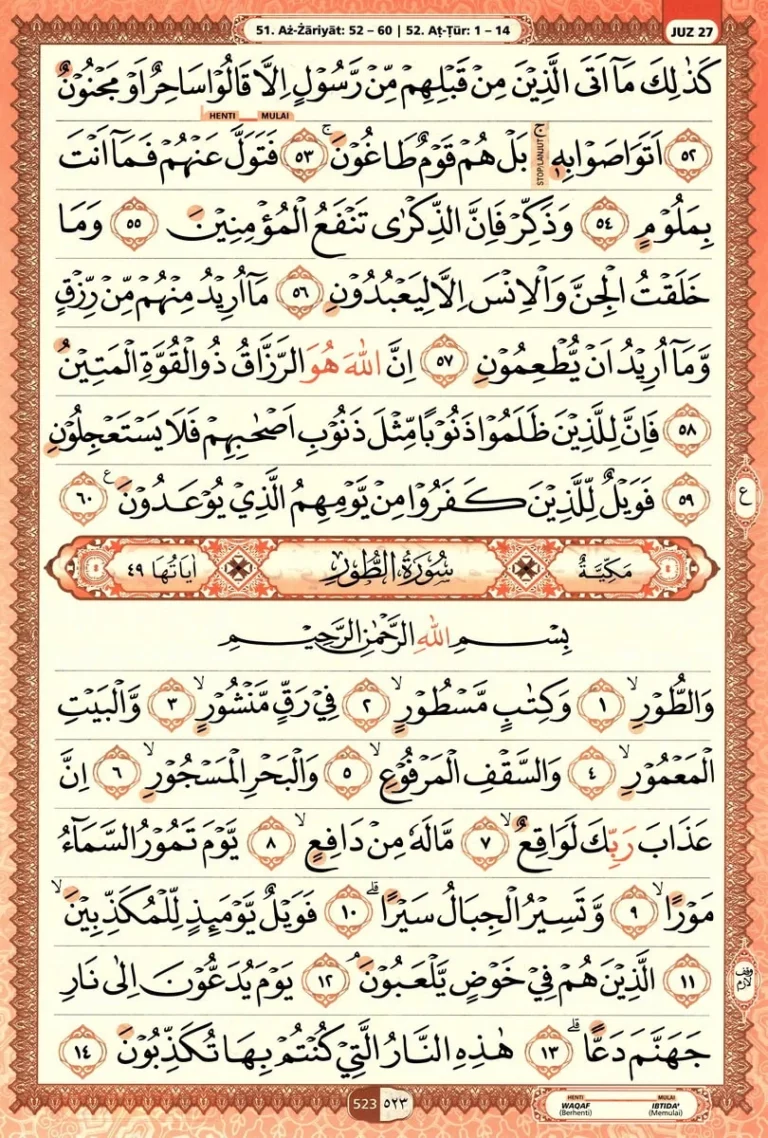 51. Aż-Żāriyāt: 52 – 60 | 52. Aṭ-Ṭūr: 1 – 14
JUZ 27
كَذٰلِكَ مَآ اَتَى الَّذِيْنَ مِنْ قَبْلِهِمْ مِّنْ رَّسُوْلٍ اِلَّا قَالُوْا سَاحِرٌ اَوْ مَجْنُوْنٌ
HENTI MULAI
۝٥٢ اَتَوَاصَوْا بِهٖۚ بَلْ هُمْ قَوْمٌ طَاغُوْنَۚ ۝٥٣ فَتَوَلَّ عَنْهُمْ فَمَآ اَنْتَ
STOP/LANJUT
بِمَلُوْمٍ ۝٥٤ وَذَكِّرْ فَاِنَّ الذِّكْرٰى تَنْفَعُ الْمُؤْمِنِيْنَ ۝٥٥ وَمَا
خَلَقْتُ الْجِنَّ وَالْاِنْسَ اِلَّا لِيَعْبُدُوْنِ ۝٥٦ مَآ اُرِيْدُ مِنْهُمْ مِّنْ رِّزْقٍ
وَّمَآ اُرِيْدُ اَنْ يُّطْعِمُوْنِ ۝٥٧ اِنَّ اللّٰهَ هُوَ الرَّزَّاقُ ذُو الْقُوَّةِ الْمَتِيْنُ
۝٥٨ فَاِنَّ لِلَّذِيْنَ ظَلَمُوْا ذَنُوْبًا مِّثْلَ ذَنُوْبِ اَصْحٰبِهِمْ فَلَا يَسْتَعْجِلُوْنِ
۝٥٩ فَوَيْلٌ لِّلَّذِيْنَ كَفَرُوْا مِنْ يَّوْمِهِمُ الَّذِيْ يُوْعَدُوْنَ ࣖ ۝٦٠
ع
مَكِّيَّةٌ سُوْرَةُ الطُّوْرِ اٰيَاتُهَا ٤٩
بِسْمِ اللّٰهِ الرَّحْمٰنِ الرَّحِيْمِ
وَالطُّوْرِۙ ۝١ وَكِتٰبٍ مَّسْطُوْرٍۙ ۝٢ فِيْ رَقٍّ مَّنْشُوْرٍۙ ۝٣ وَّالْبَيْتِ
الْمَعْمُوْرِۙ ۝٤ وَالسَّقْفِ الْمَرْفُوْعِۙ ۝٥ وَالْبَحْرِ الْمَسْجُوْرِۙ ۝٦ اِنَّ
عَذَابَ رَبِّكَ لَوَاقِعٌۙ ۝٧ مَّا لَهٗ مِنْ دَافِعٍۙ ۝٨ يَّوْمَ تَمُوْرُ السَّمَاۤءُ
مَوْرًاۙ ۝٩ وَّتَسِيْرُ الْجِبَالُ سَيْرًاۗ ۝١٠ فَوَيْلٌ يَّوْمَىِٕذٍ لِّلْمُكَذِّبِيْنَۙ
۝١١ الَّذِيْنَ هُمْ فِيْ خَوْضٍ يَّلْعَبُوْنَ ۝١٢ يَوْمَ يُدَعُّوْنَ اِلٰى نَارِ
وقف لازم
جَهَنَّمَ دَعًّاۗ ۝١٣ هٰذِهِ النَّارُ الَّتِيْ كُنْتُمْ بِهَا تُكَذِّبُوْنَ ۝١٤
523 ٥٢٣
HENTI MULAI
WAQAF IBTIDA'
(Berhenti) (Memulai)